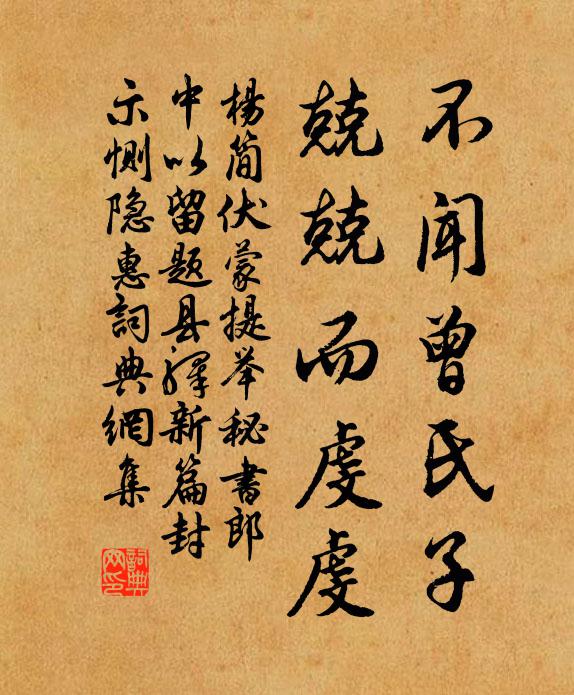 不闻曾氏子
兢兢而虔虔
杨简伏蒙提举秘书郎
中以留题县驿新篇封
示恻隐惠词典网集
词典网印